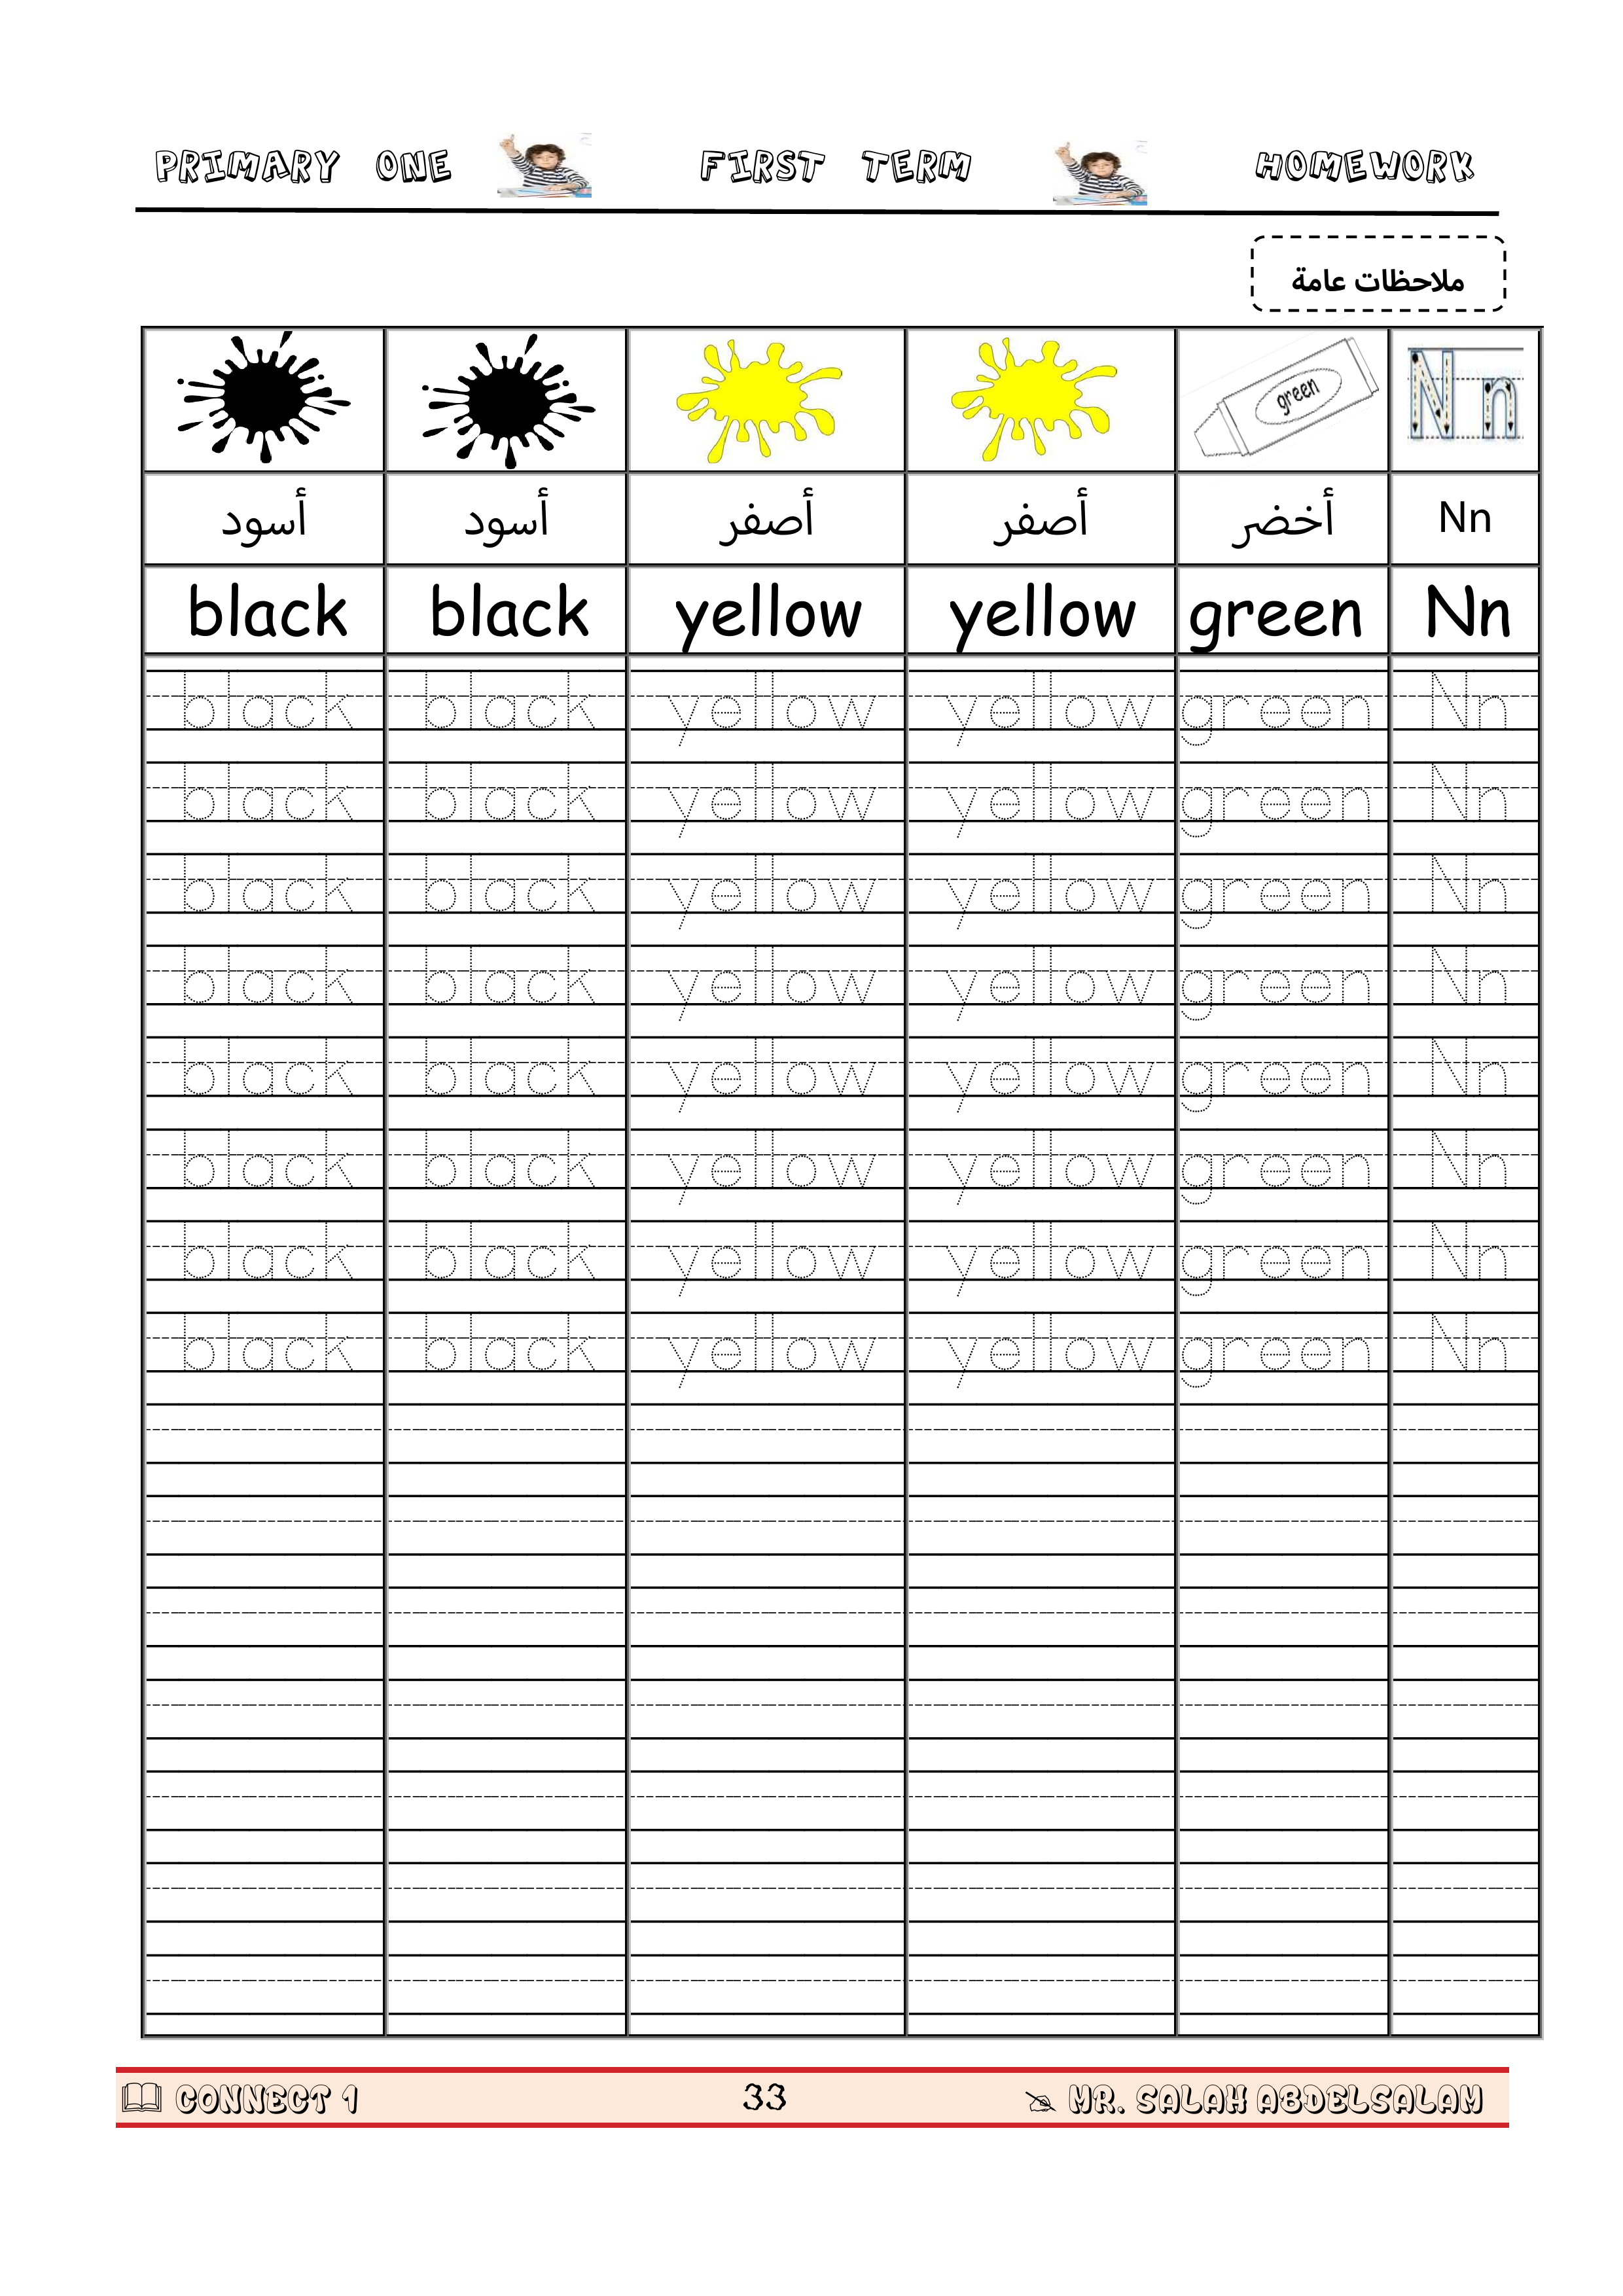 PRIMARY ONE FIRST TERM HOMEWORK
ملاحظات عامة
green Nn
أسود أسود أصفر أصفر أخضر Nn
black black yellow yellow green Nn
black black yellow yellow green Nn
black black yellow yellow green Nn
black black yellow yellow green Nn
black black yellow yellow green Nn
black black yellow yellow green Nn
black black yellow yellow green Nn
black black yellow yellow green Nn
black black yellow yellow green Nn
CONNECT 1 33 MR. SALAH ABDELSALAM